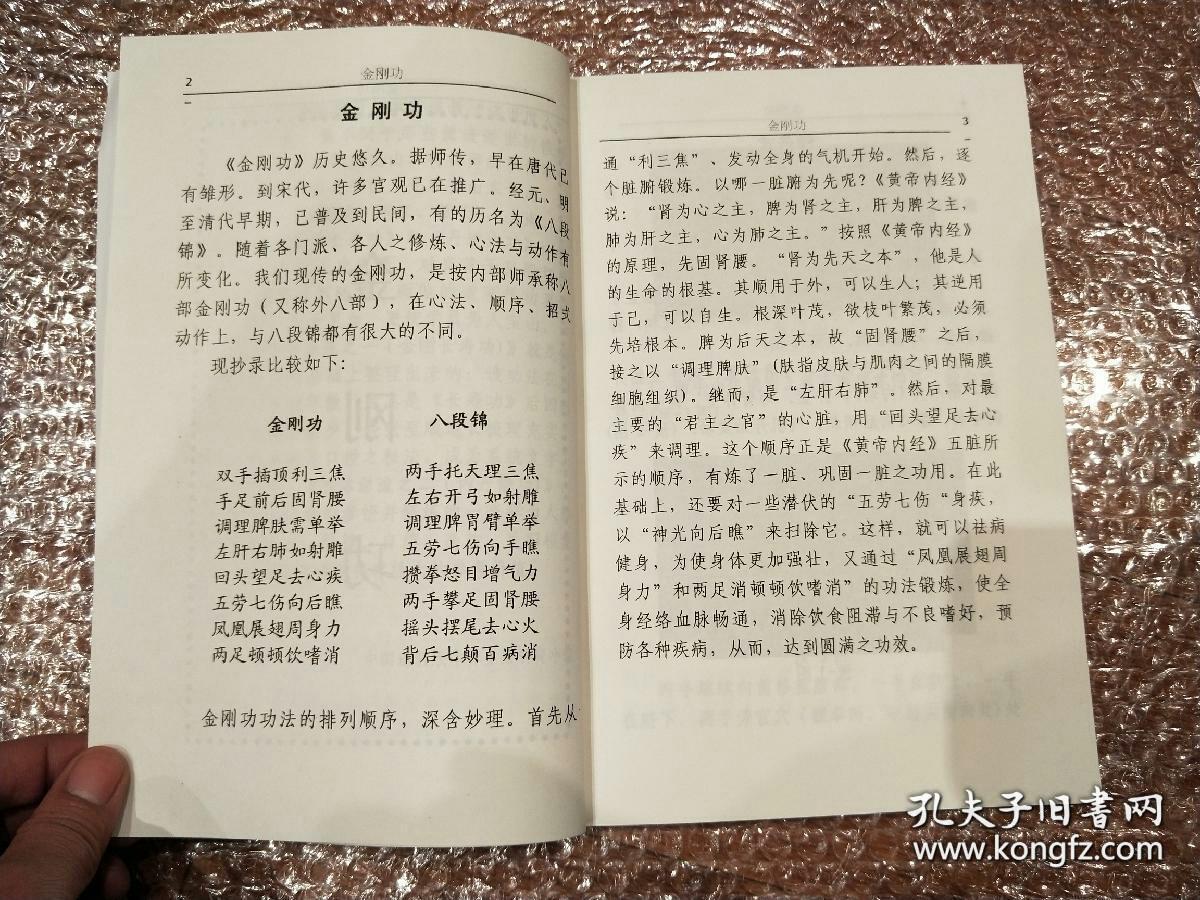 2
金刚功
金刚功
《金刚功》历史悠久。据师传，早在唐代已
有雏形。到宋代，许多宫观已在推广。经元、明
至清代早期，已普及到民间，有的历名为《八段
锦》。随着各门派、各人之修炼、心法与动作有
所变化。我们现传的金刚功，是按内部师承称八
部金刚功（又称外八部），在心法、顺序、招式
动作上，与八段锦都有很大的不同。
现抄录比较如下：
金刚功 八段锦
双手插顶利三焦 两手托天理三焦
手足前后固肾腰 左右开弓如射雕
调理脾肤需单举 调理脾胃臂单举
左肝右肺如射雕 五劳七伤向手瞧
回头望足去心疾 攒拳怒目增气力
五劳七伤向后瞧 两手攀足固肾腰
凤凰展翅周身力 摇头摆尾去心火
两足顿顿饮嗜消 背后七颠百病消
金刚功功法的排列顺序，深含妙理。首先从
金刚功
3
通“利三焦”、发动全身的气机开始。然后，逐
个脏腑锻炼。以哪一脏腑为先呢？《黄帝内经》
说：“肾为心之主，脾为肾之主，肝为脾之主，
肺为肝之主，心为肺之主。”按照《黄帝内经》
的原理，先固肾腰。“肾为先天之本”，他是人
的生命的根基。其顺用于外，可以生人；其逆用
于己，可以自生。根深叶茂，欲枝叶繁茂，必须
先培根本。脾为后天之本，故“固肾腰”之后，
接之以“调理脾肤”(肤指皮肤与肌肉之间的隔膜
细胞组织)。继而，是“左肝右肺”。然后，对最
主要的“君主之官”的心脏，用“回头望足去心
疾”来调理。这个顺序正是《黄帝内经》五脏所
示的顺序，有炼了一脏、巩固一脏之功用。在此
基础上，还要对一些潜伏的“五劳七伤“身疾，
以“神光向后瞧”来扫除它。这样，就可以祛病
健身，为使身体更加强壮，又通过“凤凰展翅周
身力”和两足消顿顿饮嗜消”的功法锻炼，使全
身经络血脉畅通，消除饮食阻滞与不良嗜好，预
防各种疾病，从而，达到圆满之功效。
孔夫子旧书网
www.kongfz.com